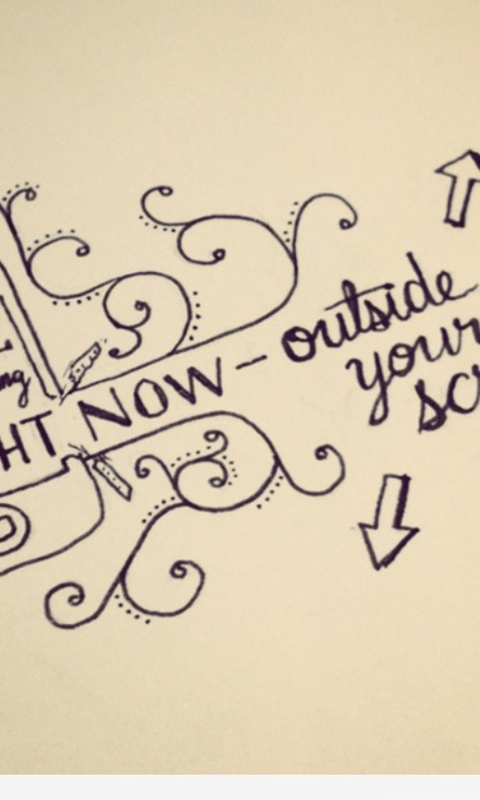 ng
HT NOW – outside
your
sc